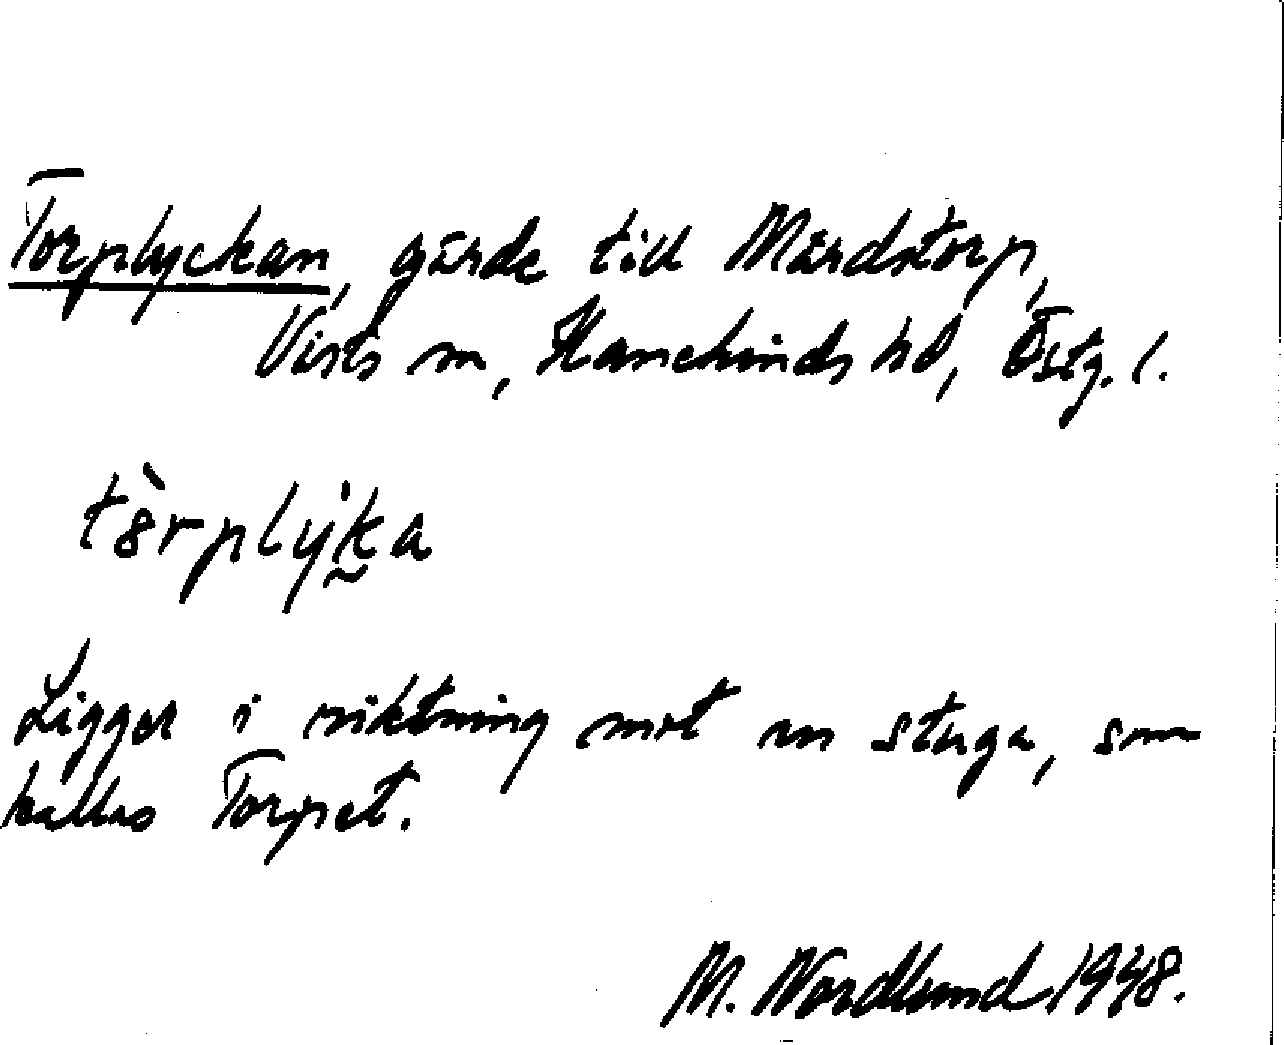 Torplyckan, gärde till Mårdstorp,
Vists sn, Hanekinds hd, Östg. l.
tòrply̍k̰a
Ligger i riktning mot en stuga, som
kallas Torpet.
M. Nordlund 1948.